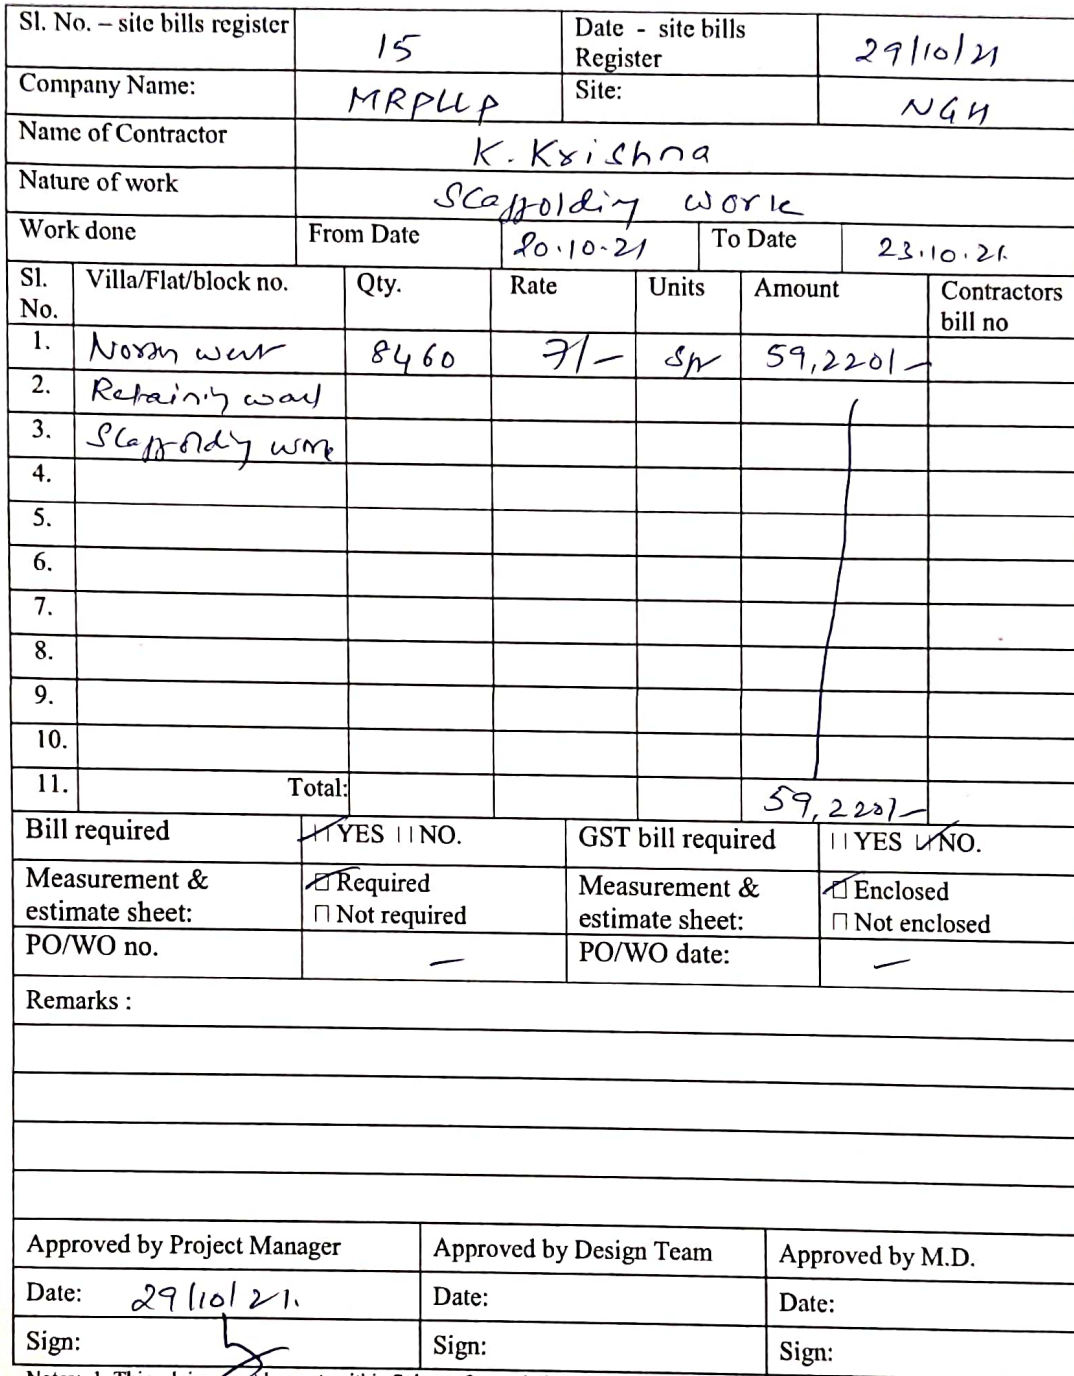 Sl. No. – site bills register 15 Date - site bills Register 29/10/21
Company Name: MRPLLP Site: NGH
Name of Contractor K. Krishna
Nature of work Scaffolding work
Work done From Date 20.10.21 To Date 23.10.21.
Sl. No. Villa/Flat/block no. Qty. Rate Units Amount Contractors bill no
1. North west 8460 7/- Sft 59,220/-
2. Retaining wall
3. Scaffolding work
4.
5.
6.
7.
8.
9.
10.
11. Total: 59,220/-
Bill required YES NO. GST bill required YES NO.
Measurement & estimate sheet: Required Not required Measurement & estimate sheet: Enclosed Not enclosed
PO/WO no. – PO/WO date: –
Remarks :
Approved by Project Manager Approved by Design Team Approved by M.D.
Date: 29/10/21. Date: Date:
Sign: Sign: Sign: